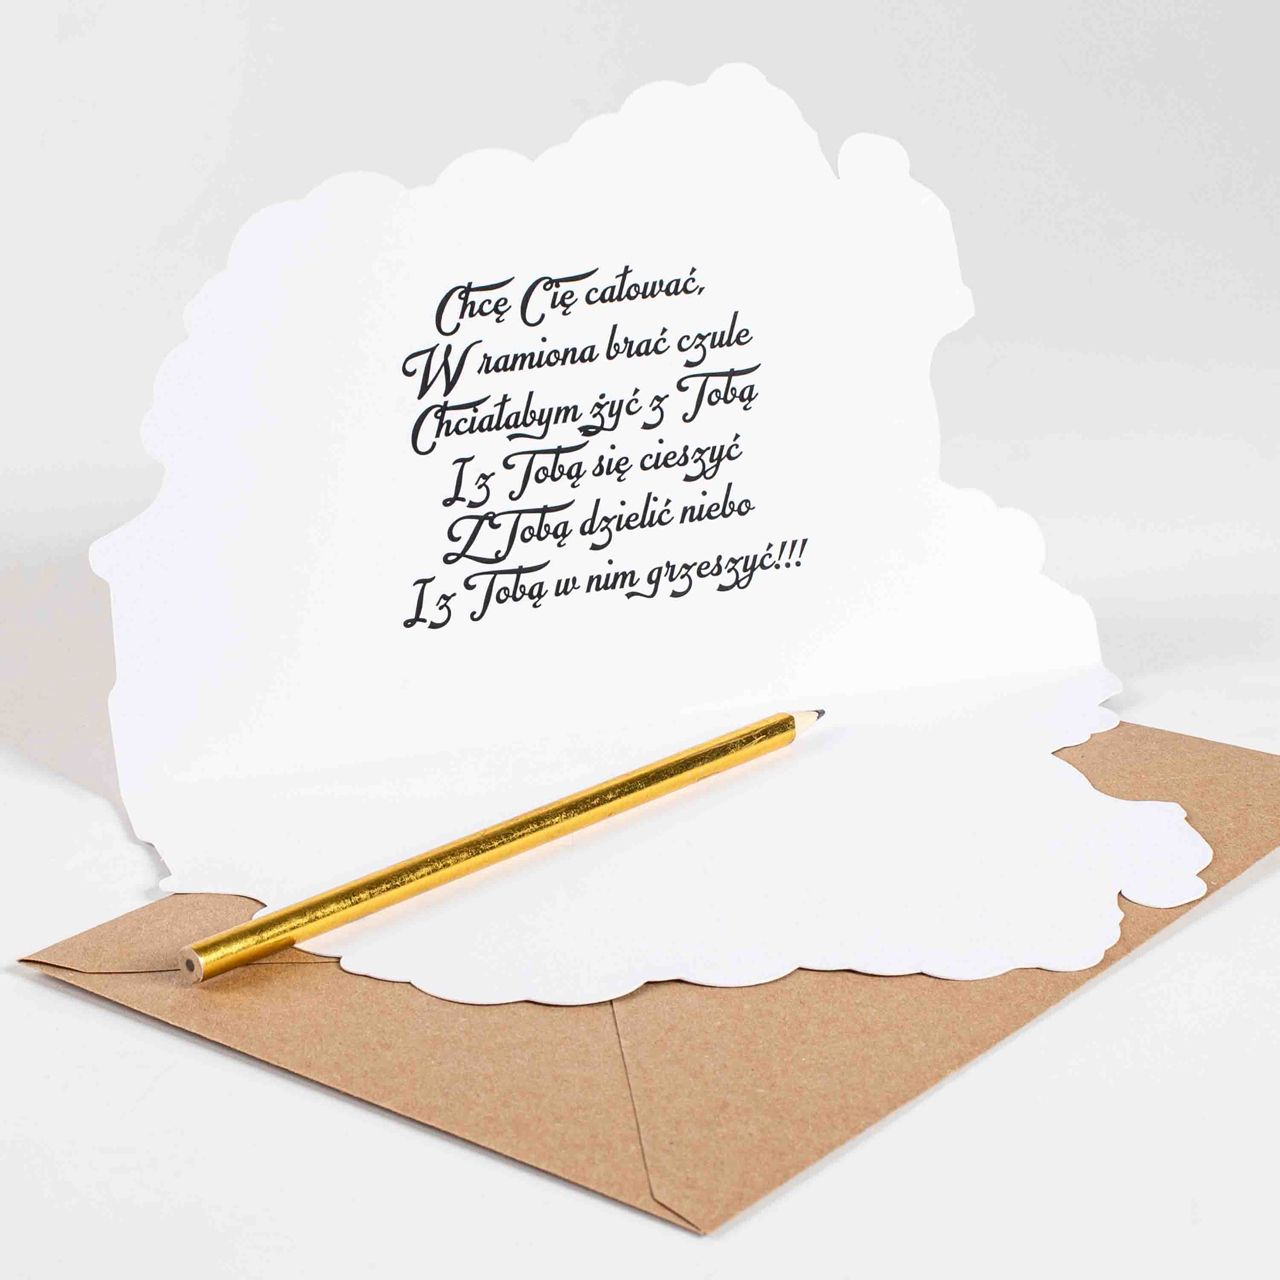 Chcę Cię całować,
W ramiona brać czule
Chciałabym żyć z Tobą
I z Tobą się cieszyć
Z Tobą dzielić niebo
I z Tobą w nim grzeszyć!!!